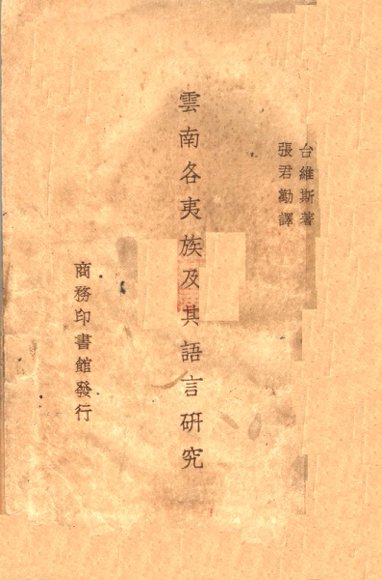 台維斯著
張君勱譯
雲南各夷族及其語言研究
商務印書館發行